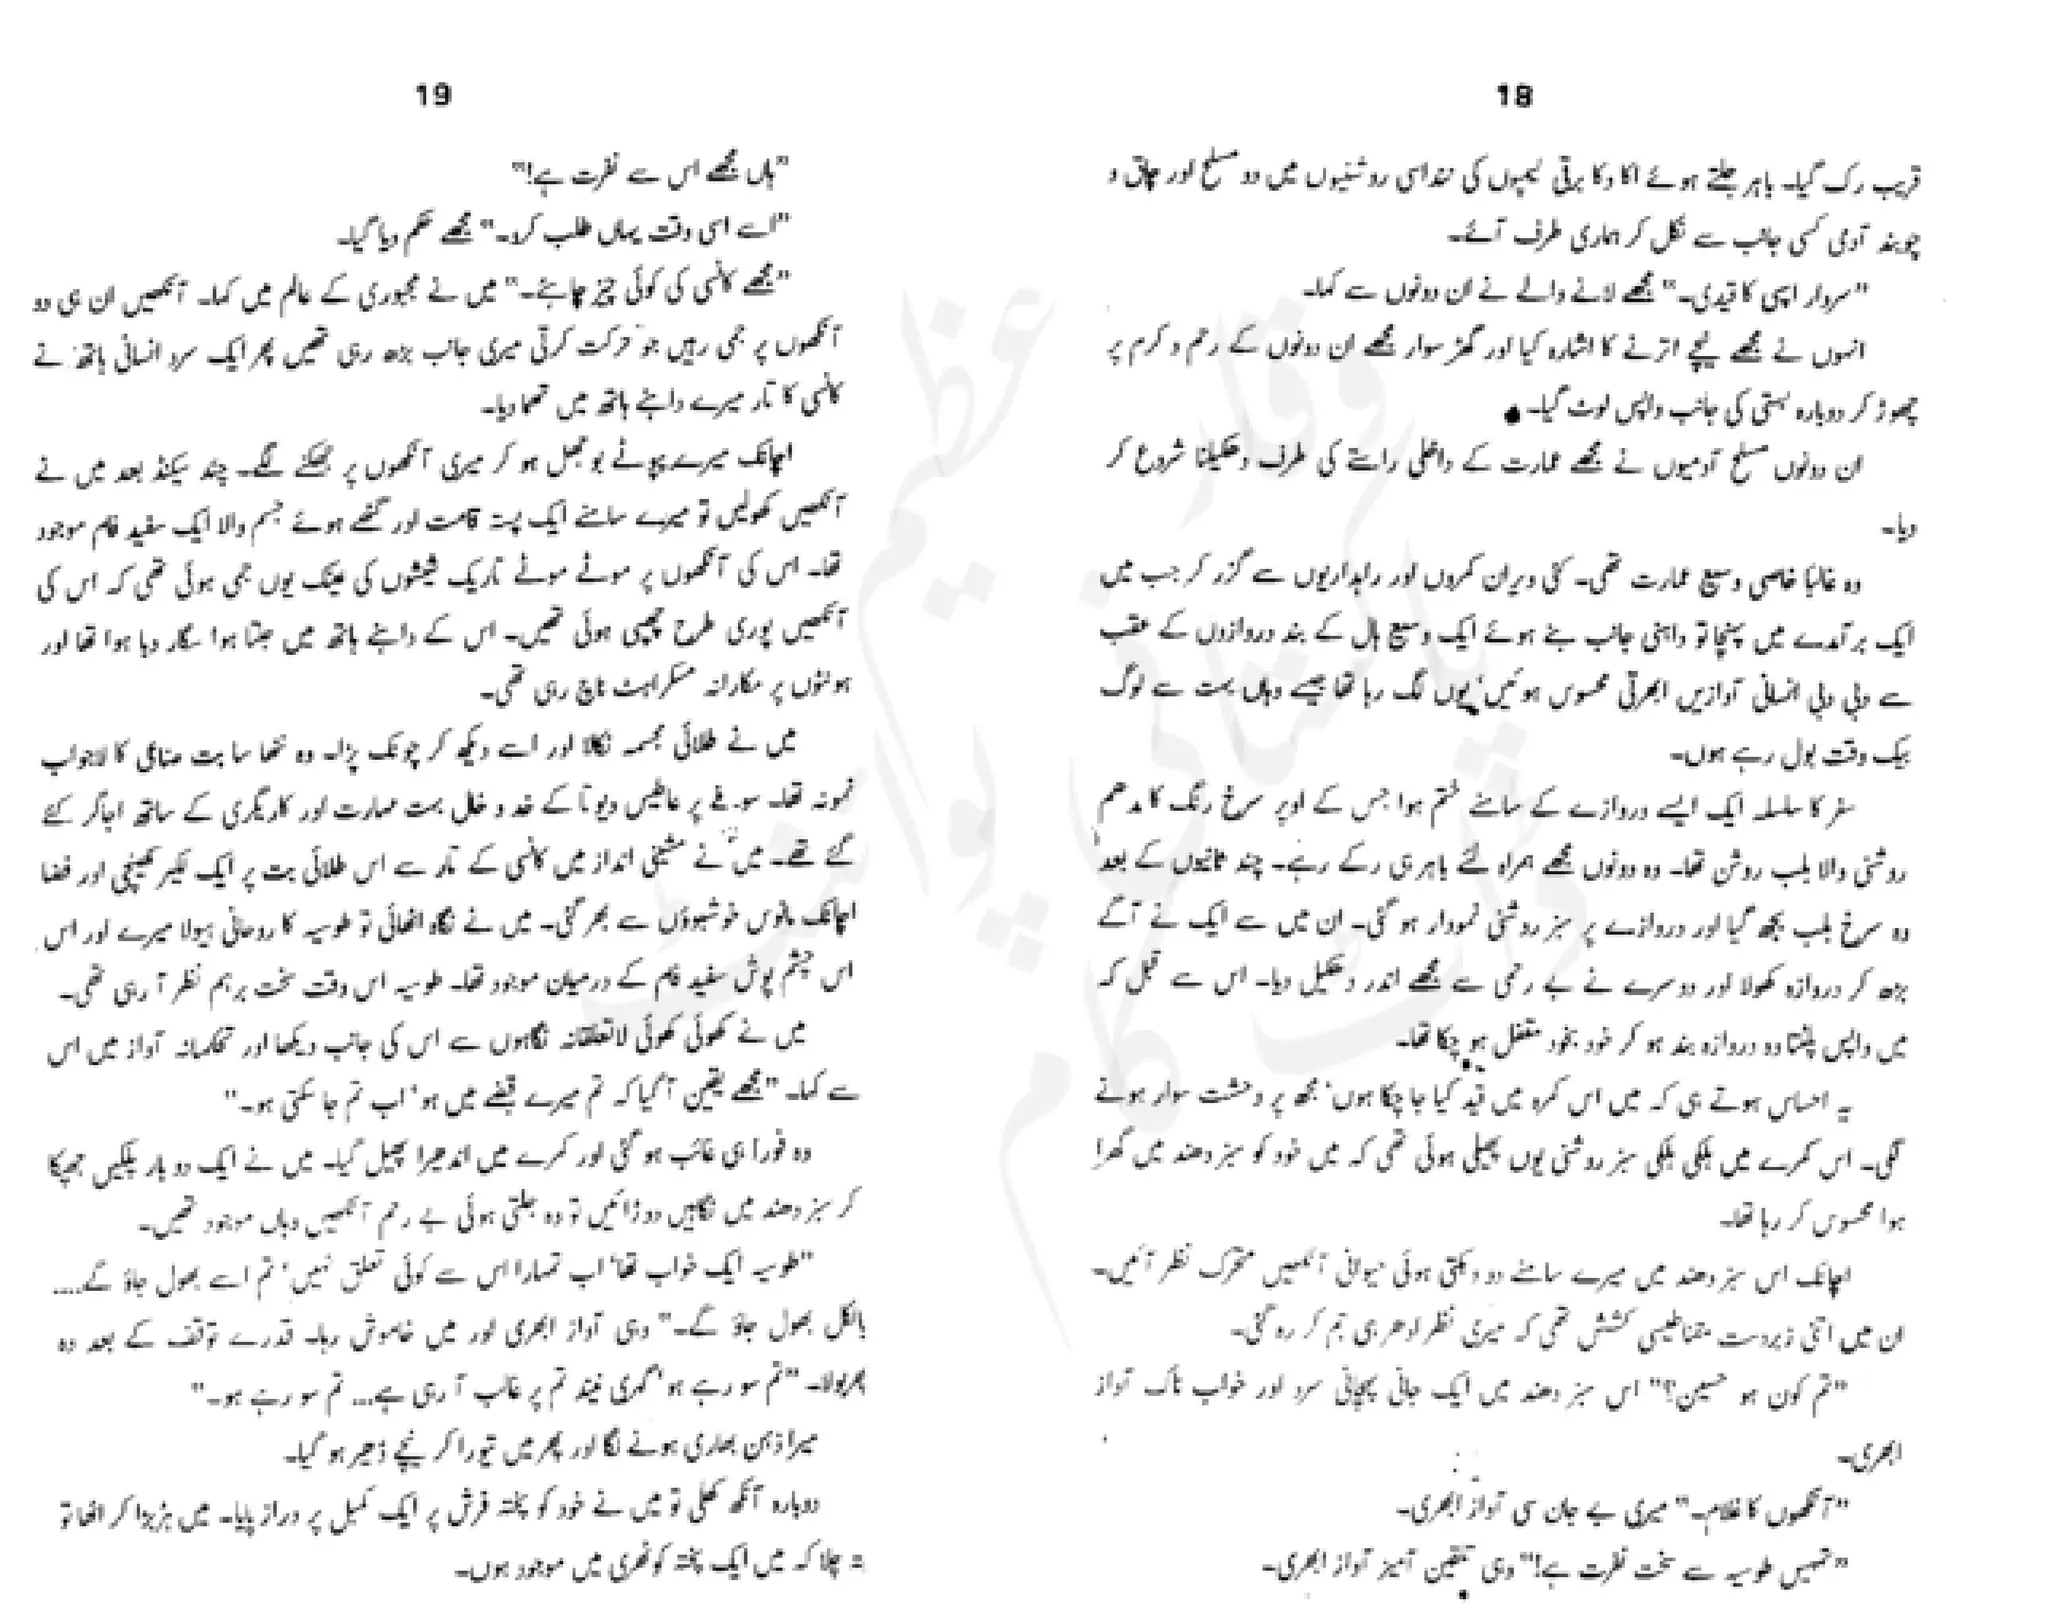 18
قریب رک گیا۔ باہر جلتے ہوئے اکا دکا برقی لیمپوں کی سنداسی روشنیوں میں دو مسلح اور چاق و
چوبند آدمی کسی جانب سے نکل کر ہماری طرف آئے۔
"سردار ایسی کا قیدی۔" مجھے لانے والے نے ان دونوں سے کہا۔
انہوں نے مجھے نیچے اترنے کا اشارہ کیا اور گھڑ سوار مجھے ان دونوں کے رحم و کرم پر
چھوڑ کر دوبارہ بستی کی جانب واپس لوٹ گیا۔
ان دونوں مسلح آدمیوں نے مجھے عمارت کے داخلی راستے کی طرف دھکیلنا شروع کر
دیا۔
وہ غالباً خاصی وسیع عمارت تھی۔ کئی ویران کمروں اور راہداریوں سے گزر کر جب میں
ایک برآمدے میں پہنچا تو داہنی جانب بنے ہوئے ایک وسیع ہال کے بند دروازوں کے عقب
سے دبی دبی انسانی آوازیں ابھرتی محسوس ہوئیں' یوں لگ رہا تھا جیسے وہاں بہت سے لوگ
بیک وقت بول رہے ہوں۔
سفر کا سلسلہ ایک ایسے دروازے کے سامنے ختم ہوا جس کے اوپر سرخ رنگ کا مدھم
روشنی والا بلب روشن تھا۔ وہ دونوں مجھے ہمراہ لئے باہر ہی رکے رہے۔ چند ثانیوں کے بعد
وہ سرخ بلب بجھ گیا اور دروازے پر سبز روشنی نمودار ہو گئی۔ ان میں سے ایک نے آگے
بڑھ کر دروازہ کھولا اور دوسرے نے بے رحمی سے مجھے اندر دھکیل دیا۔ اس سے قبل کہ
میں واپس پلٹتا وہ دروازہ بند ہو کر خود بخود مقفل ہو چکا تھا۔
یہ احساس ہوتے ہی کہ میں اس کمرہ میں قید کیا جا چکا ہوں' مجھ پر وحشت سوار ہونے
لگی۔ اس کمرے میں ہلکی ہلکی سبز روشنی یوں پھیلی ہوئی تھی کہ میں خود کو سبز دھند میں گھرا
ہوا محسوس کر رہا تھا۔
اچانک اس سبز دھند میں میرے سامنے دو دہکتی ہوئی حیوانی آنکھیں متحرک نظر آئیں۔
ان میں اتنی زبردست مقناطیسی کشش تھی کہ میری نظر ادھر ہی جم کر رہ گئی۔
"تم کون ہو حسین؟" اس سبز دھند میں ایک جانی پہچانی سرد اور خواب ناک آواز
ابھری۔
"آنکھوں کا غلام۔" میری بے جان سی آواز ابھری۔
"تمہیں طوسیہ سے سخت نفرت ہے!" وہی یقین آمیز آواز ابھری۔
19
"ہاں مجھے اس سے نفرت ہے!"
"اسے اسی وقت یہاں طلب کرو۔" مجھے حکم دیا گیا۔
"مجھے کانسی کی کوئی چیز چاہئے۔" میں نے مجبوری کے عالم میں کہا۔ آنکھیں ان ہی دو
آنکھوں پر جمی رہیں جو حرکت کرتی میری جانب بڑھ رہی تھیں پھر ایک سرد انسانی ہاتھ نے
کانسی کا تار میرے داہنے ہاتھ میں تھما دیا۔
اچانک میرے پپوٹے بوجھل ہو کر میری آنکھوں پر جھکنے لگے۔ چند سیکنڈ بعد میں نے
آنکھیں کھولیں تو میرے سامنے ایک پستہ قامت اور گٹھے ہوئے جسم والا ایک سفید فام موجود
تھا۔ اس کی آنکھوں پر موٹے موٹے تاریک شیشوں کی عینک یوں جمی ہوئی تھی کہ اس کی
آنکھیں پوری طرح چھپی ہوئی تھیں۔ اس کے داہنے ہاتھ میں جلتا ہوا سگار دبا ہوا تھا اور
ہونٹوں پر مکارانہ مسکراہٹ ناچ رہی تھی۔
میں نے طلائی مجسمہ نکالا اور اسے دیکھ کر چونک پڑا۔ وہ ننھا سا بت صناعی کا لاجواب
نمونہ تھا۔ سونے پر عاطیس دیوتا کے خد و خال بہت مہارت اور کاریگری کے ساتھ اجاگر کئے
گئے تھے۔ میں نے مشینی انداز میں کانسی کے تار سے اس طلائی بت پر ایک لکیر کھینچی اور فضا
اچانک مانوس خوشبوؤں سے بھر گئی۔ میں نے نگاہ اٹھائی تو طوسیہ کا روحانی ہیولا میرے اور اس
اس چشم پوش سفید فام کے درمیان موجود تھا۔ طوسیہ اس وقت سخت برہم نظر آ رہی تھی۔
میں نے کھوئی کھوئی لاتعلقانہ نگاہوں سے اس کی جانب دیکھا اور تحکمانہ آواز میں اس
سے کہا۔ "مجھے یقین آ گیا کہ تم میرے قبضے میں ہو' اب تم جا سکتی ہو۔"
وہ فوراً ہی غائب ہو گئی اور کمرے میں اندھیرا پھیل گیا۔ میں نے ایک دو بار پلکیں جھپکا
کر سبز دھند میں نگاہیں دوڑائیں تو وہ جلتی ہوئی بے رحم آنکھیں وہاں موجود تھیں۔
"طوسیہ ایک خواب تھا' اب تمہارا اس سے کوئی تعلق نہیں' تم اسے بھول جاؤ گے....
بالکل بھول جاؤ گے۔" وہی آواز ابھری اور میں خاموش رہا۔ قدرے توقف کے بعد وہ
پھر بولا۔ "تم سو رہے ہو' گہری نیند تم پر غالب آ رہی ہے... تم سو رہے ہو۔"
میرا ذہن بھاری ہونے لگا اور پھر میں تیورا کر نیچے ڈھیر ہو گیا۔
دوبارہ آنکھ کھلی تو میں نے خود کو پختہ فرش پر ایک کمبل پر دراز پایا۔ میں ہڑبڑا کر اٹھا تو
پتہ چلا کہ میں ایک پختہ کوٹھری میں موجود ہوں۔
وقار عظیم
پاکستانی پوائنٹ
ڈاٹ کام